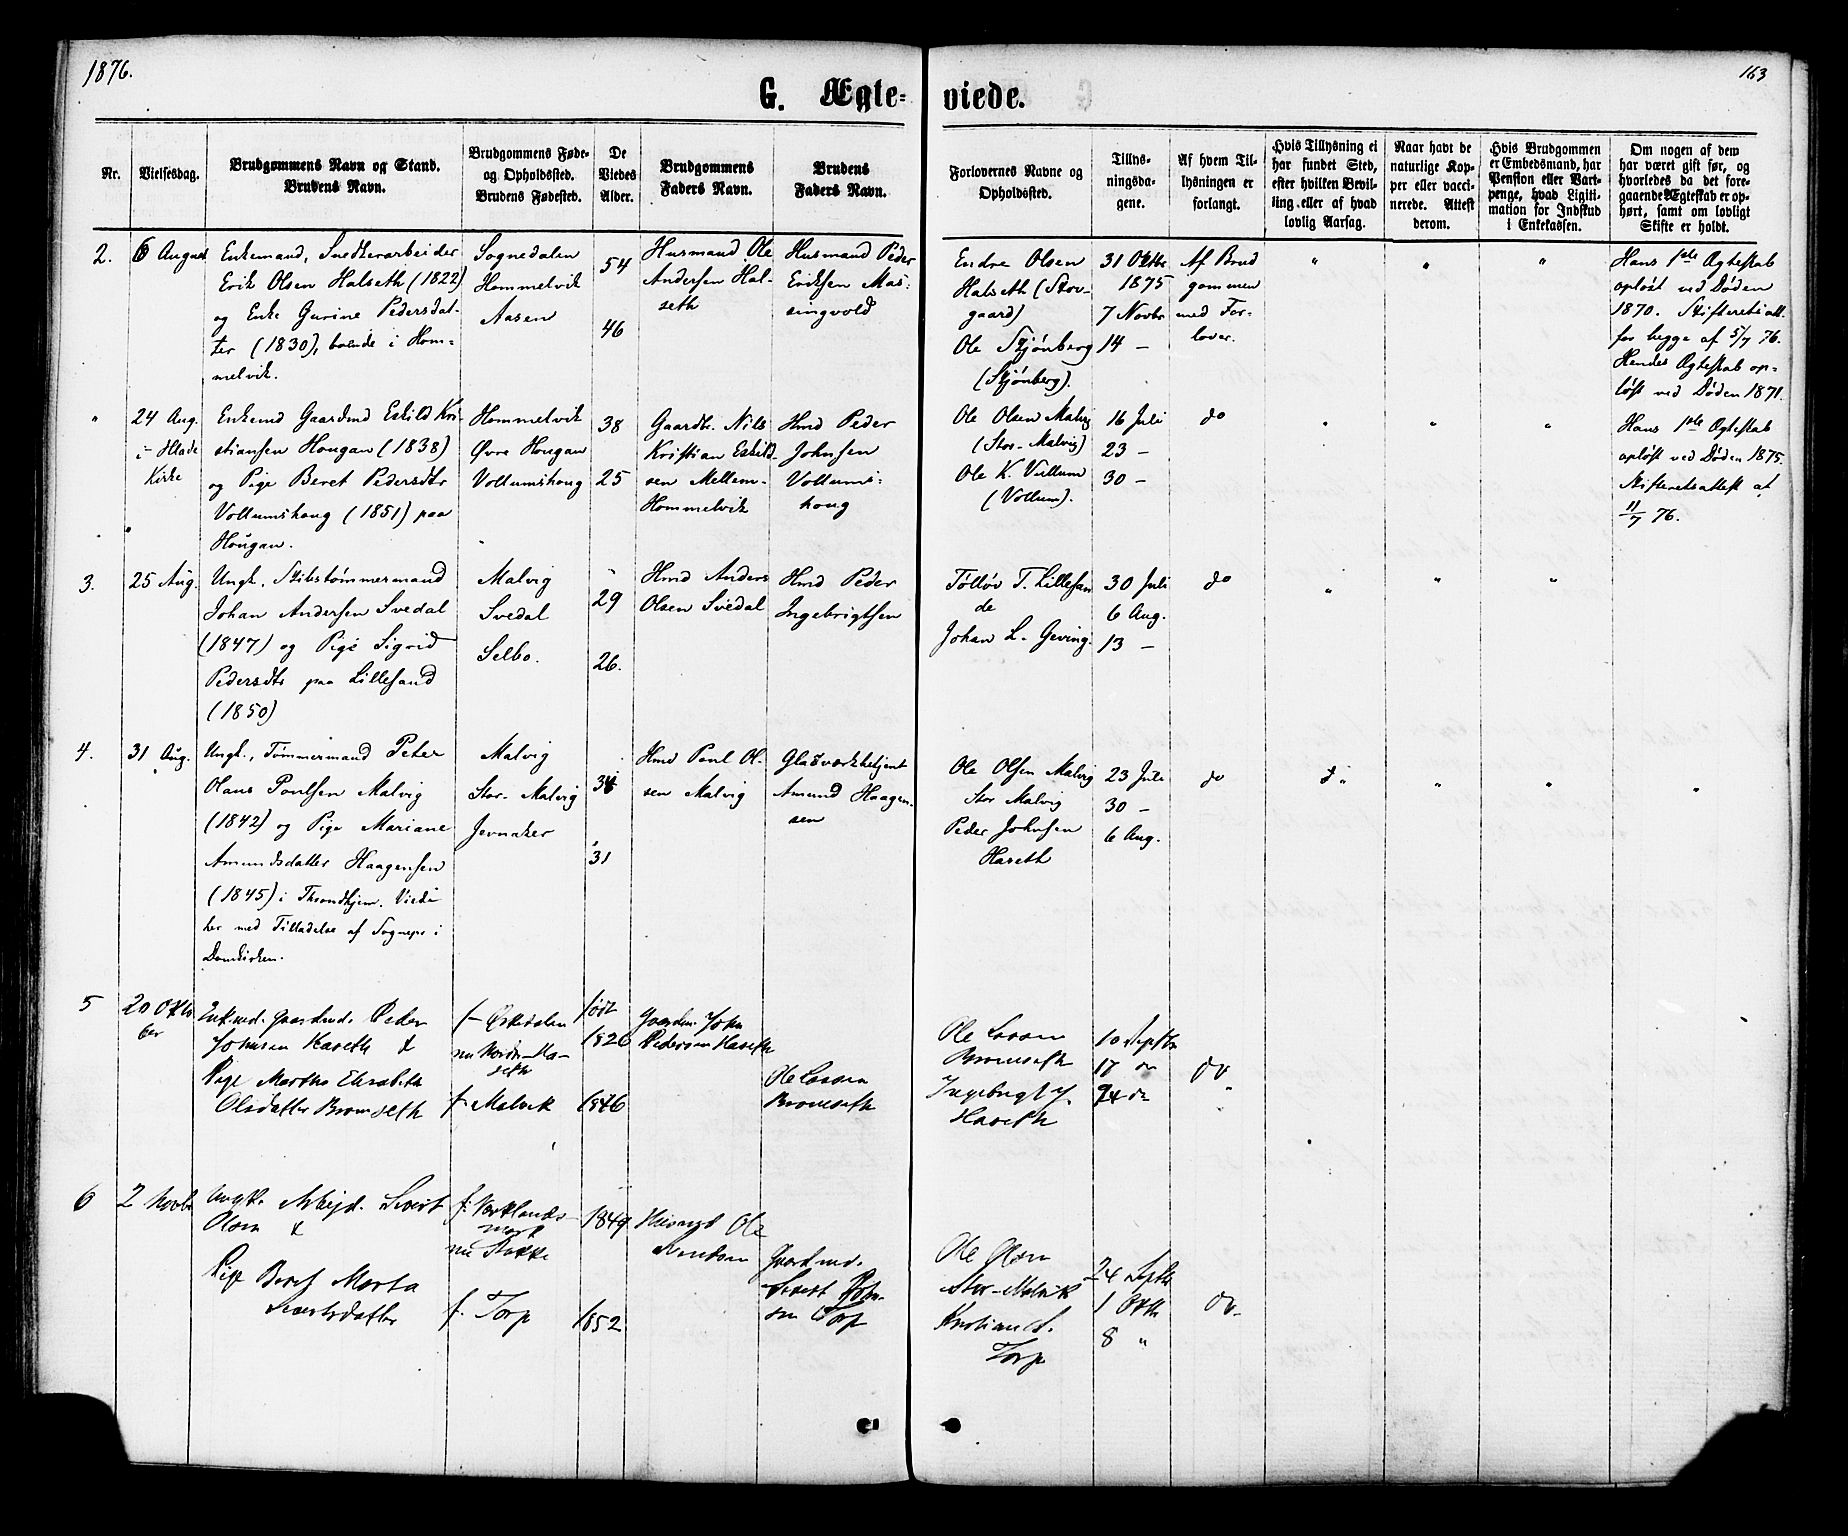 1876.
163
G. Ægte-
viede.
Nr.
Vielsesdag.
Brudgommens Navn og Stand.
Brudens Navn.
Brudgommens Føde-
og Opholdssted.
Brudens Fødested.
De
Viedes
Alder.
Brudgommens
Faders Navn.
Brudens
Faders Navn.
Forlovernes Navne og
Opholdssted.
Tillys-
ningsda-
gene.
Af hvem Til-
lysningen er
forlangt.
Hvis Tillysning ei
har fundet Sted,
efter hvilken Bevil-
ling eller af hvad
lovlig Aarsag.
Naar havt de
naturlige Kop-
per eller vacci-
nerede. Attest
derom.
Hvis Brudgommen
er Embedsmand, har
Pension eller Vart-
penge, hvad Ligiti-
mation for Indskud
i Enkekassen.
Om nogen af dem
har været gift før, og
hvorledes da det fore-
gaaende Ægteskab er op-
hørt, samt om lovligt
Skifte er holdt.
2.
6 August
Enkemand, Snedkerarbeider
Erik Olsen Halseth (1822)
og Enke Gurine Pedersdat-
ter (1830), boende i Hom-
melvik.
Sognedalen
Hommelvik
Aasen
54
46
Husmand Ole
Andersen Hal-
seth
Husmand Peder
Eriksen Mas-
singvold
Endre Olsen
Halseth (Stor-
gaard)
Ole Stjønberg
(Stjønberg).
31 Oktbr
1875
7 Novbr
14 —
Af Brud
gommen
med For-
lover.
"
"
"
Hans 1ste Ægteskab
opløst ved Døden
1870. Skifteretsatt.
for begge af 5/7 76.
Hendes Ægteskab op-
løst ved Døden 1871.
"
24 Aug.
i Hlade
Kirke
Enkemd Gaardmd Eskild Kri-
stiansen Hougan (1838)
og Pige Beret Pedersdtr
Vollumshoug (1851) paa
Hougan.
Hommelvik
Øvre Hougan
Vollumshoug
38
25
Gaardbr. Nils
Kristian Eskild-
sen Mellem-
Hommelvik
Hmd Peder
Johnsen
Vollums-
houg
Ole Olsen Malvig
(Stor-Malvig)
Ole K. Vullum
(Vollum).
16 Juli
23 —
30 —
do
"
"
"
Hans 1ste Ægteskab
opløst ved Døden 1875.
Skifteretsattest af
11/7 76.
3.
25 Aug.
Ungk. Skibstømmermand
Johan Andersen Svedal
(1847) og Pige Sigrid
Pedersdtr paa Lillesand
(1850)
Malvig
Svedal
Selbo.
29
26.
Hmd Anders
Olsen Svedal
Hmd Peder
Ingebrigtsen
Tølløv T. Lillesan
de
Johan L. Geving.
30 Juli
6 Aug.
13 —
do
"
"
"
4.
31 Aug.
Ungk., Tømmermand Peter
Olaus Poulsen Malvig
(1842) og Pige Mariane
Amundsdatter Haagensen
(1845) i Throndhjem. Viede
her med Tilladelse af Sognepr i
Domkirken.
Malvig
Stor-Malvig
Jevnaker
34
31
Hmd Poul Ol-
sen Malvig
Glasværksbetjent
Amund Haagen-
sen
Ole Olsen Malvig
Stor Malvig
Peder Johnsen
Haseth
23 Juli
30 —
6 Aug.
do
"
"
"
5
20 Oktb
ber
Enkmd. Gaardmd. Peder
Johnsen Haseth &
Pige Martha Elisabeth
Olsdatter Bromseth
f. Ørkedalen
nu Nordr-Ha-
seth
f. Malvik
født
1826
1846
Gaardm. John
Pedersen Haseth
Ole Larsen
Bromseth
Ole Larsen
Bromseth
Ingebrigt J.
Haseth
10 Septbr
17 do
24 do
do
6
2 Novbr
Ungk. Arbejd. Sivert
Olsen &
Pige Beret Marta
Sivertsdatter
nu Stokke
f. Torp
1849
1852
Husmd Ole
Gaardmd.
Sivert John-
sen Torp
Ole Olsen
Stor-Malvik
Kristian S.
Torp
24 Septbr
1 Oktb
8 "
do.